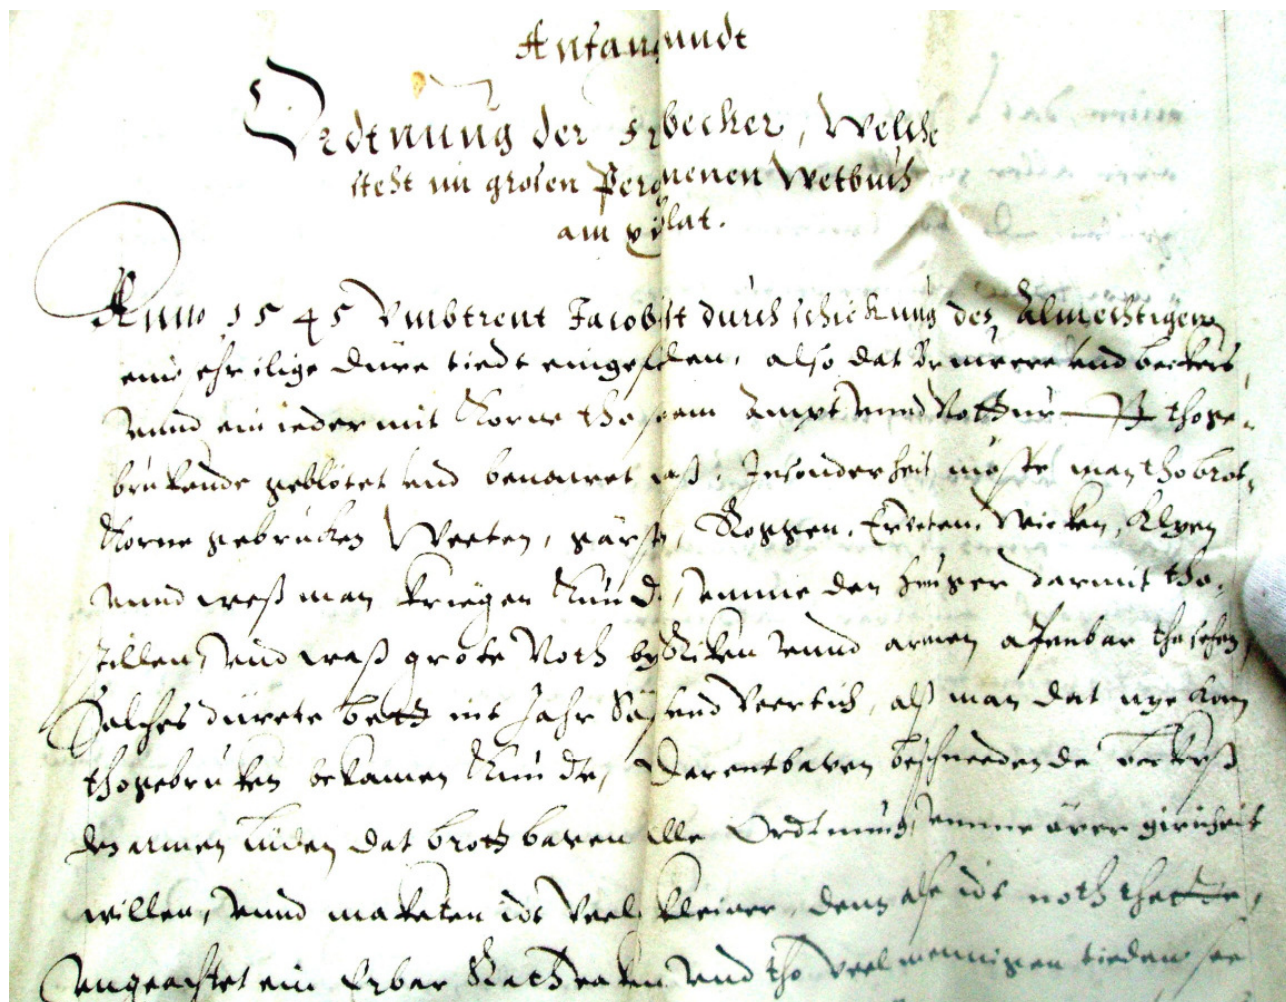 Anfang unndt
Ordtnung der becker, Welche
steht im grosen Pergmenen Wetbuch
am blat.
Anno 1545 Umbtrent Jacobi ist durch schickung des Almechtigen
eine ilige düre tiedt eingefallen, also dat Bruwere und beckers,
unnd ein ieder mit Korne tho sinem Ampt unnd Notturfft thoge-
brukende geblötet und benauwet waß, Insonderheit moste man tho brot-
Korne gebrucken Weeten, gärsten, Roggen, Erweten, Wicken, Klyen
unnd weß man kriegen Kunde, umme den Hunger darmit tho
stillen, und waß grote Noth by Riken unnd armen apenbar tho sehen,
Solches dürete beth int Jahr Söß und Veertich, alß man dat nye Korn
thogebruken bekamen Kunde, Darentbaven beschneeden de Beckerß
den armen lüden dat broth baven alle Ordtnung, umme örer giricheit
willen, unnd makeden idt veel kleiner, denn alse idt noth thette,
ungeachtet ein Erbar Rath und tho veel mennigen tieden see